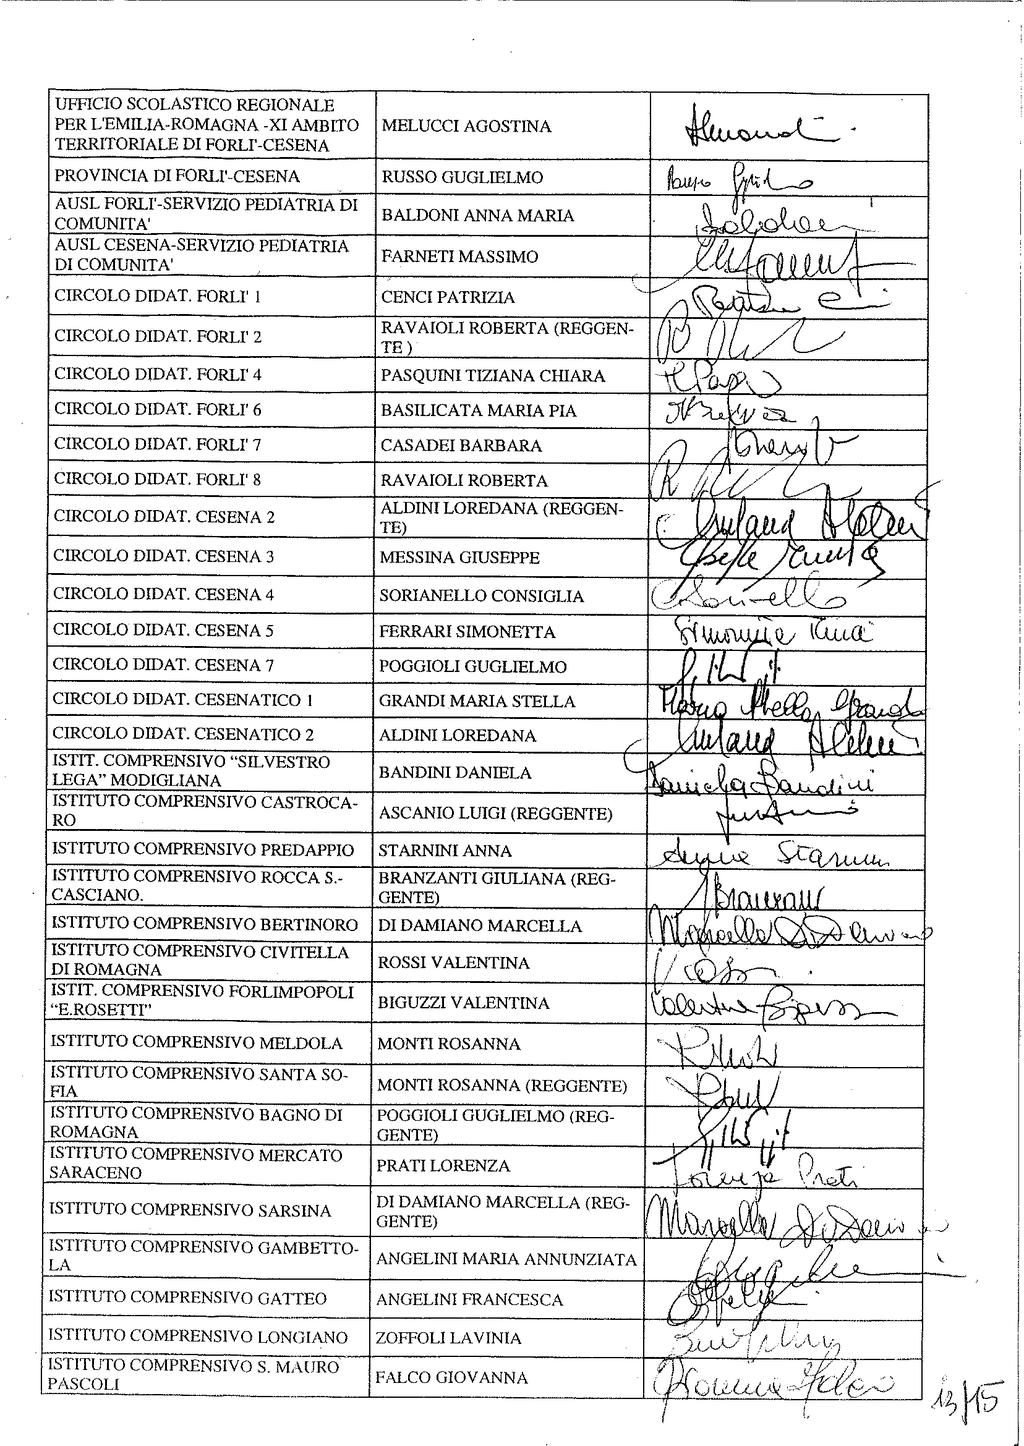 UFFICIO SCOLASTICO REGIONALE
PER L'EMILIA-ROMAGNA -XI AMBITO
TERRITORIALE DI FORLI'-CESENA
MELUCCI AGOSTINA
PROVINCIA DI FORLI'-CESENA
RUSSO GUGLIELMO
AUSL FORLI'-SERVIZIO PEDIATRIA DI
COMUNITA'
BALDONI ANNA MARIA
AUSL CESENA-SERVIZIO PEDIATRIA
DI COMUNITA'
FARNETI MASSIMO
CIRCOLO DIDAT. FORLI' 1
CENCI PATRIZIA
CIRCOLO DIDAT. FORLI' 2
RAVAIOLI ROBERTA (REGGEN-
TE )
CIRCOLO DIDAT. FORLI' 4
PASQUINI TIZIANA CHIARA
CIRCOLO DIDAT. FORLI' 6
BASILICATA MARIA PIA
CIRCOLO DIDAT. FORLI' 7
CASADEI BARBARA
CIRCOLO DIDAT. FORLI' 8
RAVAIOLI ROBERTA
CIRCOLO DIDAT. CESENA 2
ALDINI LOREDANA (REGGEN-
TE)
CIRCOLO DIDAT. CESENA 3
MESSINA GIUSEPPE
CIRCOLO DIDAT. CESENA 4
SORIANELLO CONSIGLIA
CIRCOLO DIDAT. CESENA 5
FERRARI SIMONETTA
CIRCOLO DIDAT. CESENA 7
POGGIOLI GUGLIELMO
CIRCOLO DIDAT. CESENATICO 1
GRANDI MARIA STELLA
Maria Stella Grandi
CIRCOLO DIDAT. CESENATICO 2
ALDINI LOREDANA
ISTIT. COMPRENSIVO “SILVESTRO
LEGA” MODIGLIANA
BANDINI DANIELA
Daniela Bandini
ISTITUTO COMPRENSIVO CASTROCA-
RO
ASCANIO LUIGI (REGGENTE)
ISTITUTO COMPRENSIVO PREDAPPIO
STARNINI ANNA
ISTITUTO COMPRENSIVO ROCCA S.-
CASCIANO.
BRANZANTI GIULIANA (REG-
GENTE)
ISTITUTO COMPRENSIVO BERTINORO
DI DAMIANO MARCELLA
Marcella Di Damiano
ISTITUTO COMPRENSIVO CIVITELLA
DI ROMAGNA
ROSSI VALENTINA
ISTIT. COMPRENSIVO FORLIMPOPOLI
“E.ROSETTI”
BIGUZZI VALENTINA
ISTITUTO COMPRENSIVO MELDOLA
MONTI ROSANNA
ISTITUTO COMPRENSIVO SANTA SO-
FIA
MONTI ROSANNA (REGGENTE)
ISTITUTO COMPRENSIVO BAGNO DI
ROMAGNA
POGGIOLI GUGLIELMO (REG-
GENTE)
ISTITUTO COMPRENSIVO MERCATO
SARACENO
PRATI LORENZA
Lorenza Prati
ISTITUTO COMPRENSIVO SARSINA
DI DAMIANO MARCELLA (REG-
GENTE)
Marcella Di Damiano
ISTITUTO COMPRENSIVO GAMBETTO-
LA
ANGELINI MARIA ANNUNZIATA
ISTITUTO COMPRENSIVO GATTEO
ANGELINI FRANCESCA
ISTITUTO COMPRENSIVO LONGIANO
ZOFFOLI LAVINIA
ISTITUTO COMPRENSIVO S. MAURO
PASCOLI
FALCO GIOVANNA
13/15